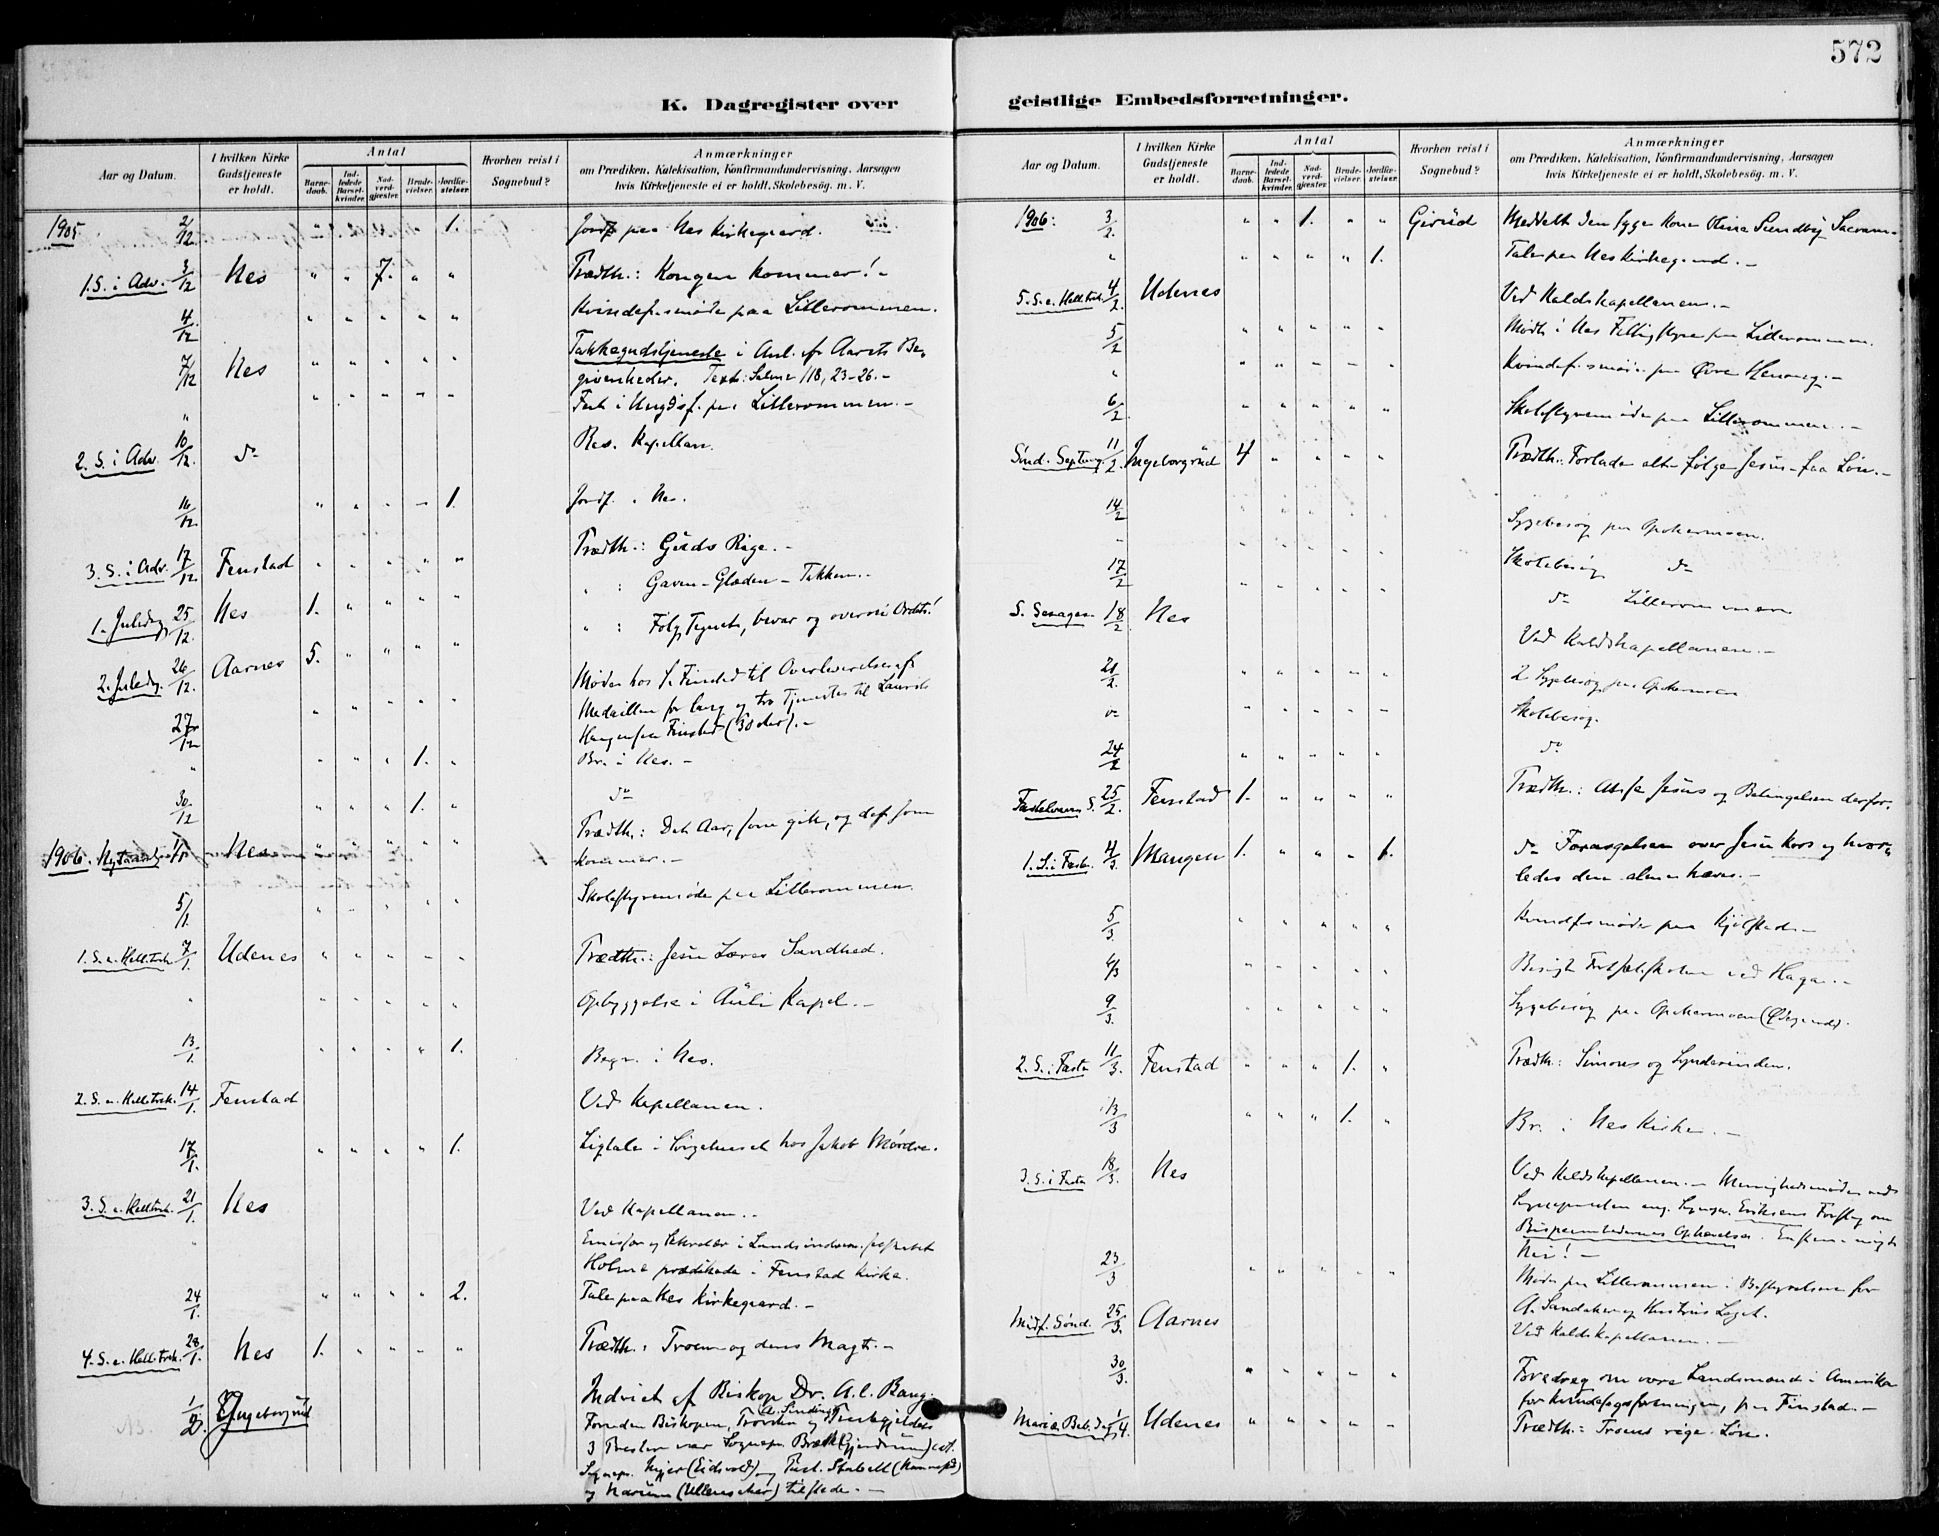 572
K. Dagregister over
geistlige Embedsforretninger.
Aar og Datum.
I hvilken Kirke Gudstjeneste er holdt.
Antal
Barnedaab.
Indledede Barselkvinder.
Nadverdgjæster.
Brudevielser.
Jordfæstelser.
Hvorhen reist i Sognebud?
Anmærkninger
om Prædiken, Katekisation, Konfirmandundervisning, Aarsagen
hvis Kirketjeneste ei er holdt, Skolebesøg. m. V.
1905 2/12 " " " " 1. Jordf. paa Nes Kirkegaard.
1. S. i Adv. 3/12 Nes " " 7. " " Prædk.: Kongen kommer! -
4/12 " " " " " Kvindef.smøde paa Lillerommen.
7/12 Nes " " " " " Takkegudstjeneste i Anl. af Aarets Be-
givenheder. Text: Salme 118, 23-26. -
" " " " " " Fest i Ungdsf. paa Lillerommen. -
2. S. i Adv. 10/12 do Res. Kapellan.
16/12 " " " " 1. Jordf. i Nes.
3. S. i Adv. 17/12 Fenstad " " " " " Prædk.: Guds Rige. -
1. Juledag 25/12 Nes 1. " " " " " : Gaven - Glæden - Takken. -
2. Juledag 26/12 Aarnes 5. " " " " " : Følg Tegnet, bevar og overvei Ordet!
27/12 " " " " " Møde hos L. Finstad til Overleverelse af
Medaillen for lang og tro Tjeneste til Laurits
Haugen paa Finstad (30 Aar). -
" " " " 1. " Br. i Nes. -
30/12 " " " 1. " do
1906. Nytaarsdag 1/1 Nes " " " " " Prædk.: Det Aar, som gik, og det som
kommer. -
5/1 " " " " " Skolestyremøde paa Lillerommen.
1. S. e. Hell.trek. 7/1 Udenes " " " " " Prædk.: Jesu Læres Sandhed.
" " " " " " Opbyggelse i Auli Kapel. -
13/1. " " " " 1. Begr. i Nes.
2. S. e. Hell.trek. 14/1. Fenstad Ved Kapellanen.
17/1. " " " " 1. Ligtale i Sørgehuset hos Jakob Mørdre.
3. S. e. Hell.trek. 21/1. Nes Ved Kapellanen. -
" Emissær og Sekretær i
Holme prædikede i Fenstad Kirke.
24/1. " " " " 2. Tale paa Nes Kirkegaard. -
4. S. e. Hell.trek. 28/1. Nes 1. " " " " Prædk.: Troen og dens Magt. -
1/2 Ingeborgrud Indviet af Biskop Dr. A. C. Bang.
Foruden Biskopen, Provsten A. Sinding og Sognekaldets
3 Prester var Sognepr. Bræk (Gjerdrum)
Sognepr. Kyjer (Eidsvold) og Prest. Stabell
og Narum (Ullensaker) tilstede. -
Aar og Datum.
I hvilken Kirke Gudstjeneste er holdt.
Antal
Barnedaab.
Indledede Barselkvinder.
Nadverdgjæster.
Brudevielser.
Jordfæstelser.
Hvorhen reist i Sognebud?
Anmærkninger
om Prædiken, Katekisation, Konfirmandundervisning, Aarsagen
hvis Kirketjeneste ei er holdt, Skolebesøg. m. V.
1906: 3/2. " " 1. " " Girud Meddelt den syge Kone Olina Sundby Sacram.
" " " " " 1. Tale paa Nes Kirkegaard. -
5. S. e. Hell.trek. 4/2. Udenes Ved Kaldskapellanen. -
5/2 " " " " " Møde i Nes Fattigstyre paa Lillerommen.
" " " " " " Kvindef.smøde paa Øvre Henning. -
6/2 " " " " " Skolestyremøde paa Lillerommen. -
Sønd. Septuag. 11/2. Ingeborgrud 4 " " " " Prædk.: Forlade alt - følge Jesus - faa Løn. -
14/2 " " " " " Sygebesøg paa Opakermoen.
" " " " " " Skolebesøg do
17/2 " " " " " do Lillerommen
S. Sexages. 18/2 Nes Ved Kaldskapellanen. -
21/2. " " " " " 2 Sygebesøg paa Opakermoen
do " " " " " Skolebesøg.
24/2 " " " " " do
Fastelavns S. 25/2. Fenstad 1. " " " " Prædk.: At se Jesus og Betingelsen derfor.
1. S. i Faste 4/3. Mangen 1. " " " 1. do Forargelsen over Jesu Kors og hvor-
ledes den alene hæves. -
5/3. " " " " " Kvindef.smøde paa Kjølstad. -
6/3 " " " " " Besøgt Fortsættelsesskolen ved Haga. -
9/3. " " " " " Sygebesøg paa Opakermoen (Ødegaard).
2. S. i Faste 11/3. Fenstad " " " 1. " Prædk: Simon og Synderinden.
13/3 " " " 1. " Br. i Nes Kirke. -
3. S. i Faste 18/3. Nes Ved Kaldskapellanen. - Menighedsmøde ved
Sognepresten ang. Sognepr. Eriksens Forslag om
Bispeembedernes Ophævelse. Enstemmigt
Nei! -
23/3 " " " " " Møde paa Lillerommen i Bestyrelsen for
A. Sandaker og Hustrus Legat.
Midf. Sønd. 25/3. Aarnes Ved Kaldskapellanen. -
30/3. " " " " " Foredrag om vore Landsmænd i Amerika
for Kvindefagsforeningen, paa Finstad. -
Mariæ Beb. Dag 1/4. Udenes " " " " " Prædk: Troens rige Løn.